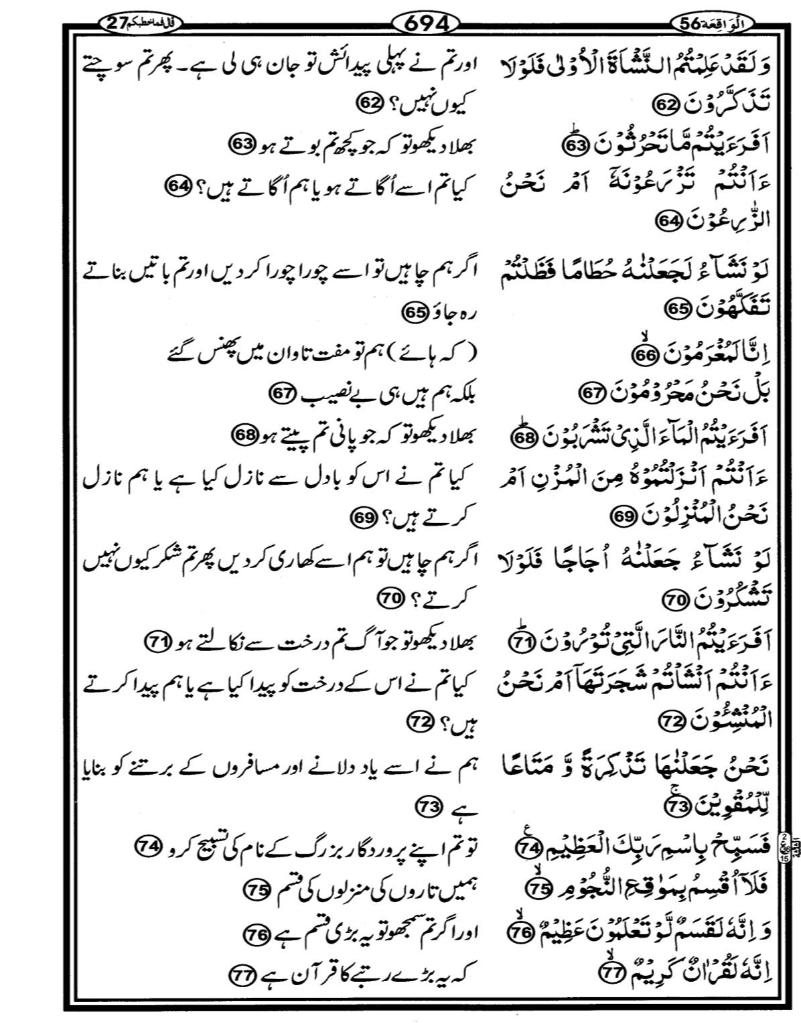 الواقعة 56
694
قال فما خطبكم 27
وَلَقَدْ عَلِمْتُمُ النَّشْاَةَ الْاُوْلٰى فَلَوْلَا
تَذَكَّرُوْنَ 62
اورتم نے پہلی پیدائش تو جان ہی لی ہے۔ پھرتم سوچتے
کیوں نہیں؟ 62
اَفَرَءَيْتُمْ مَّا تَحْرُثُوْنَ ؕ 63
بھلا دیکھو تو کہ جو کچھ تم بوتے ہو 63
ءَاَنْتُمْ تَزْرَعُوْنَهٗۤ اَمْ نَحْنُ
الزّٰرِعُوْنَ 64
کیا تم اسے اُگاتے ہو یا ہم اُگاتے ہیں؟ 64
لَوْ نَشَآءُ لَجَعَلْنٰهُ حُطَامًا فَظَلْتُمْ
تَفَكَّهُوْنَ 65
اگر ہم چاہیں تو اسے چورا چورا کر دیں اور تم باتیں بناتے
رہ جاؤ 65
اِنَّا لَمُغْرَمُوْنَ ۙ 66
(کہ ہائے) ہم تو مفت تاوان میں پھنس گئے
بَلْ نَحْنُ مَحْرُوْمُوْنَ 67
بلکہ ہم ہیں ہی بے نصیب 67
اَفَرَءَيْتُمُ الْمَآءَ الَّذِيْ تَشْرَبُوْنَ ؕ 68
بھلا دیکھو تو کہ جو پانی تم پیتے ہو 68
ءَاَنْتُمْ اَنْزَلْتُمُوْهُ مِنَ الْمُزْنِ اَمْ
نَحْنُ الْمُنْزِلُوْنَ 69
کیا تم نے اس کو بادل سے نازل کیا ہے یا ہم نازل
کرتے ہیں؟ 69
لَوْ نَشَآءُ جَعَلْنٰهُ اُجَاجًا فَلَوْلَا
تَشْكُرُوْنَ 70
اگر ہم چاہیں تو ہم اسے کھاری کر دیں پھر تم شکر کیوں نہیں
کرتے؟ 70
اَفَرَءَيْتُمُ النَّارَ الَّتِيْ تُوْرُوْنَ ؕ 71
بھلا دیکھو تو جو آگ تم درخت سے نکالتے ہو 71
ءَاَنْتُمْ اَنْشَاْتُمْ شَجَرَتَهَاۤ اَمْ نَحْنُ
الْمُنْشِـُٔوْنَ 72
کیا تم نے اس کے درخت کو پیدا کیا ہے یا ہم پیدا کرتے
ہیں؟ 72
نَحْنُ جَعَلْنٰهَا تَذْكِرَةً وَّ مَتَاعًا
لِّلْمُقْوِيْنَ ۚ 73
ہم نے اسے یاد دلانے اور مسافروں کے برتنے کو بنایا
ہے 73
فَسَبِّحْ بِاسْمِ رَبِّكَ الْعَظِيْمِ ع 74
تو تم اپنے پروردگار بزرگ کے نام کی تسبیح کرو 74
فَلَاۤ اُقْسِمُ بِمَوٰقِعِ النُّجُوْمِ ۙ 75
ہمیں تاروں کی منزلوں کی قسم 75
وَ اِنَّهٗ لَقَسَمٌ لَّوْ تَعْلَمُوْنَ عَظِيْمٌ ۙ 76
اور اگر تم سمجھو تو یہ بڑی قسم ہے 76
اِنَّهٗ لَقُرْاٰنٌ كَرِيْمٌ ۙ 77
کہ یہ بڑے رتبے کا قرآن ہے 77